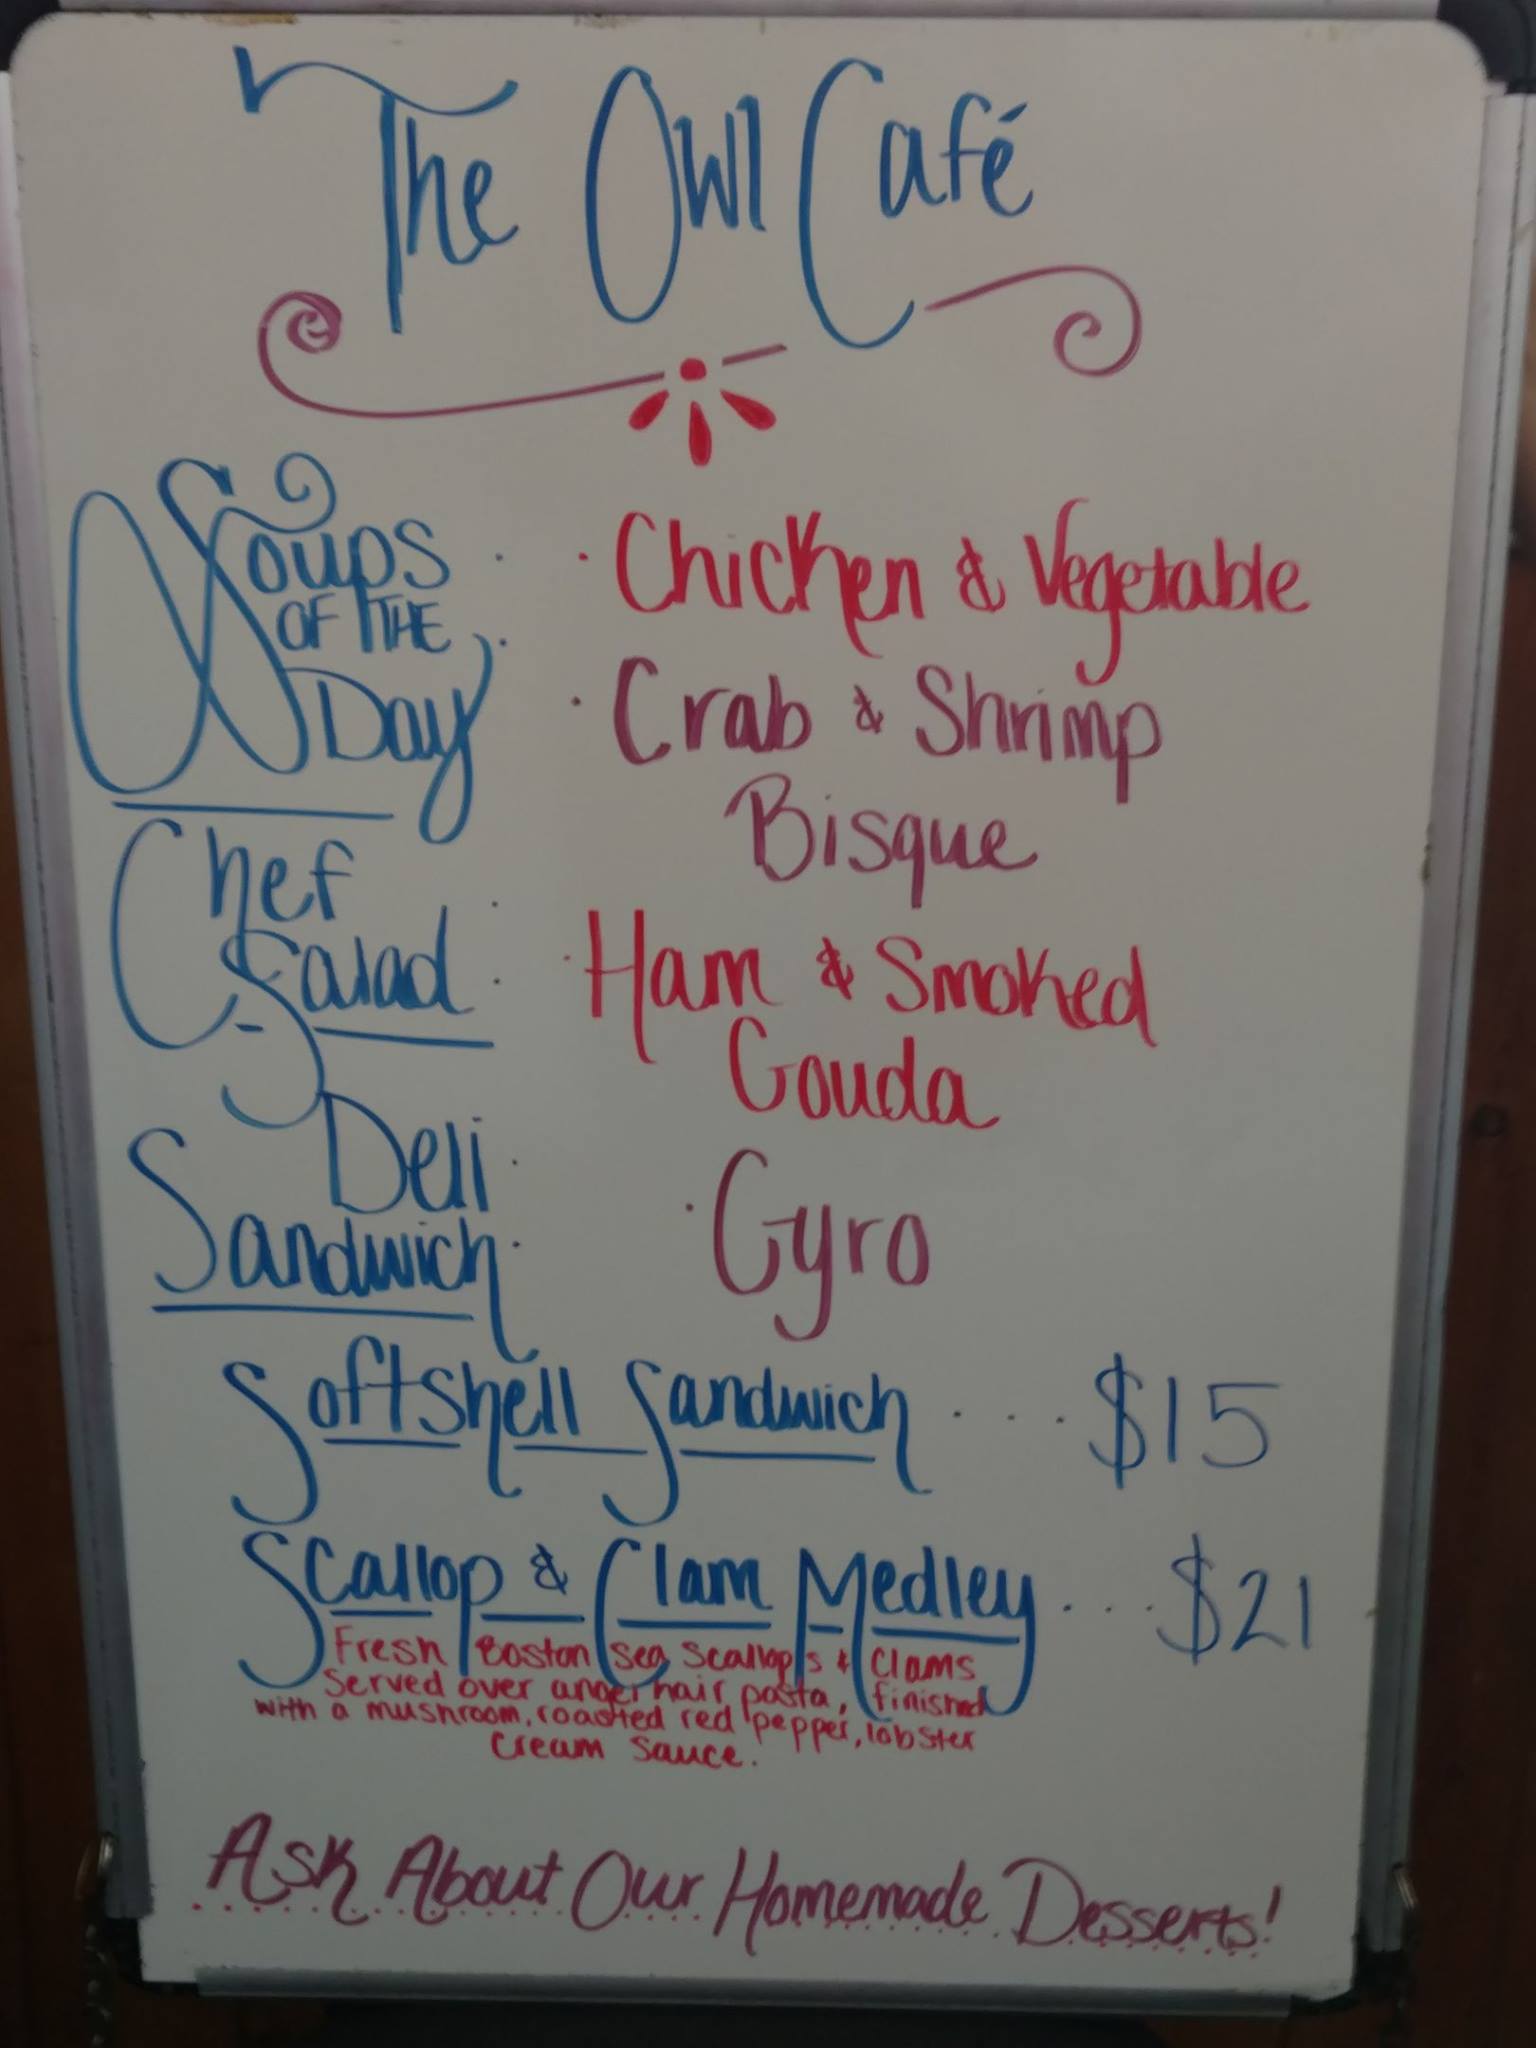 The Owl Café
Soups · · Chicken & Vegetable
OF THE
Day · · Crab & Shrimp
Bisque
Chef
Salad · · Ham & Smoked
Gouda
Deli
Sandwich · · Gyro
Softshell Sandwich . . . . $15
Scallop & Clam Medley . . . . $21
Fresh Boston sea scallops & clams
served over angel hair pasta, finished
with a mushroom, roasted red pepper, lobster
cream sauce.
Ask About Our Homemade Desserts!